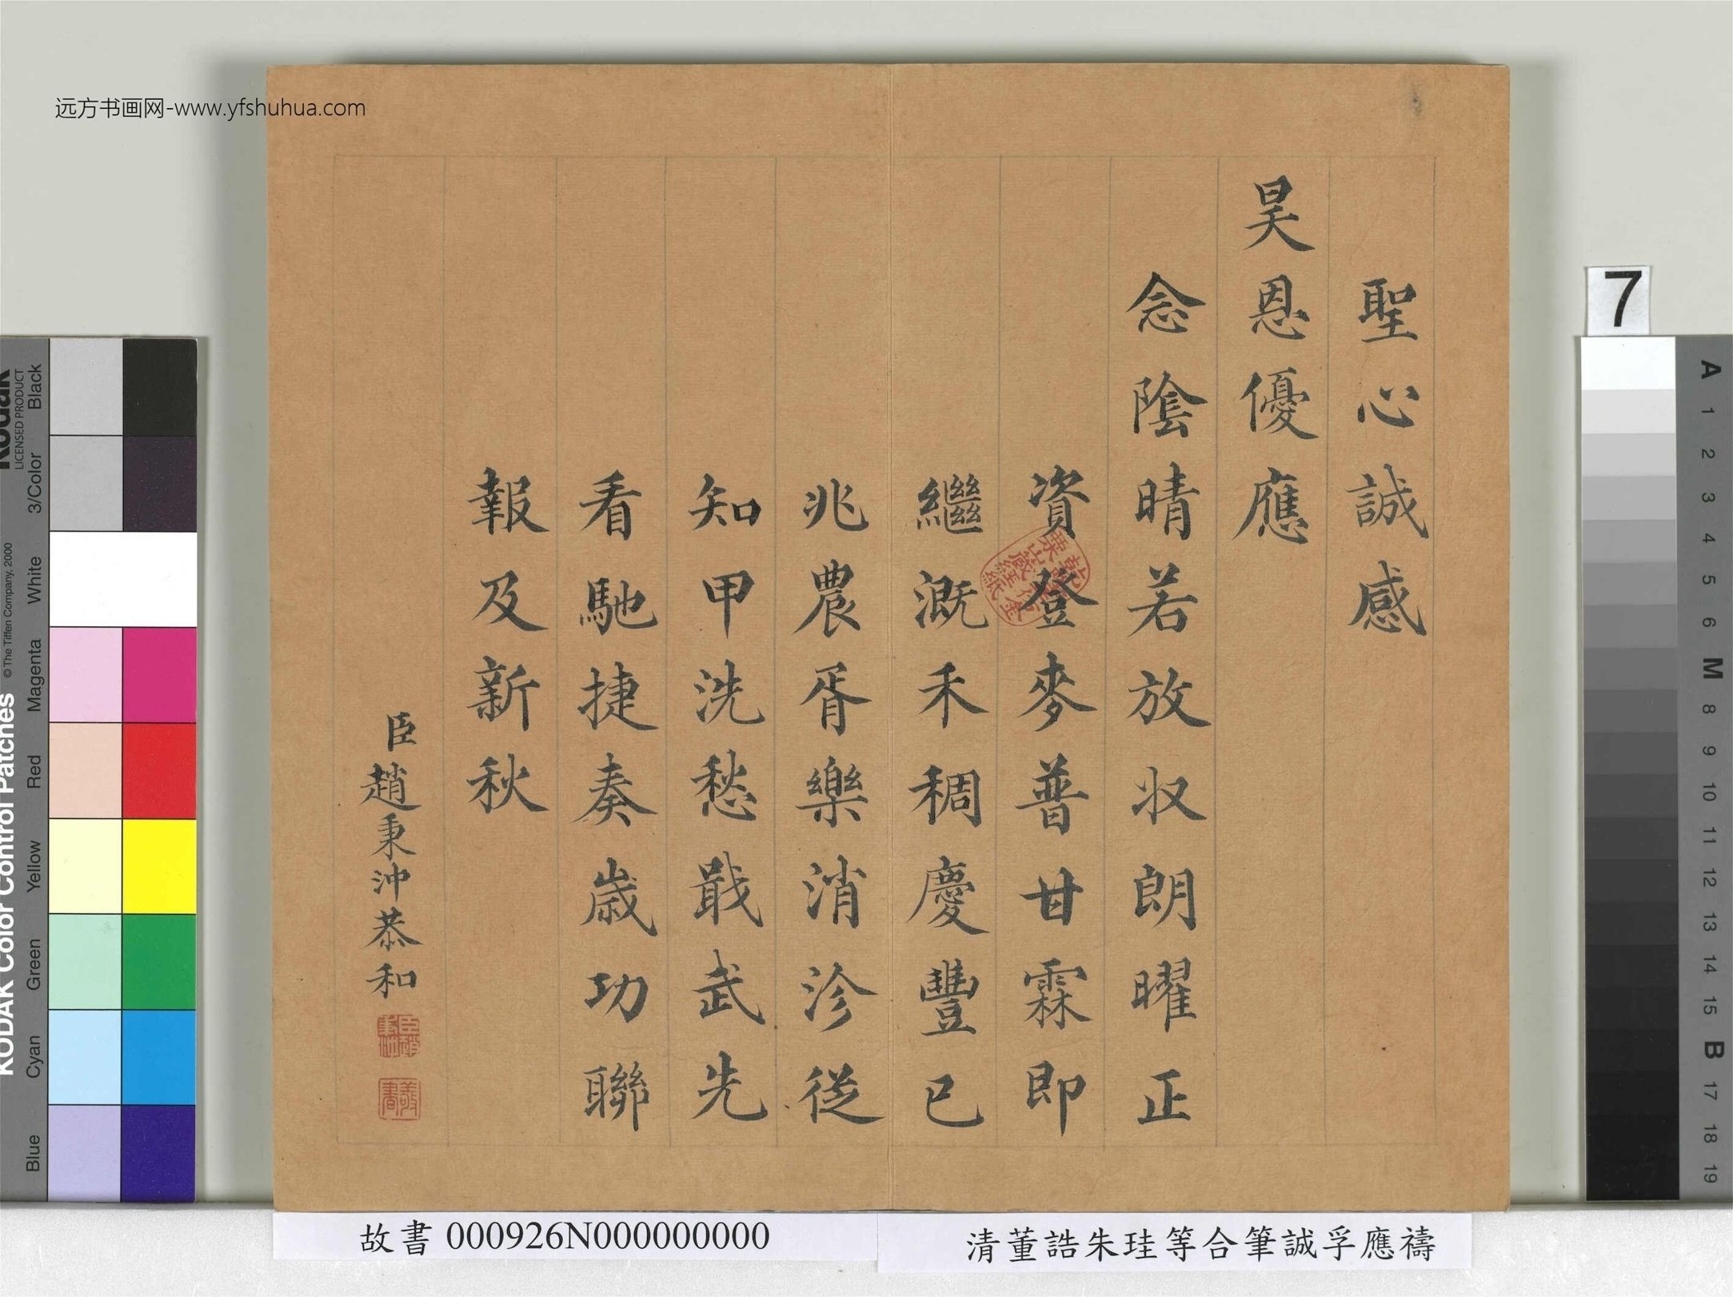 远方书画网-www.yfshuhua.com
聖心誠感
昊恩優應
念陰晴若放收朗曜正
資登麥普甘霖即
繼溉禾稠慶豐已
兆農胥樂消沴從
知甲洗愁戢武先
看馳捷奏歲功聯
報及新秋
臣趙秉沖恭和
乾隆年仿金粟山藏經紙
故書 000926N000000000
清董誥朱珪等合筆誠孚應禱
7
KODAK Color Control Patches
Kodak
LICENSED PRODUCT
© The Tiffen Company, 2000
Black
3/Color
White
Magenta
Red
Yellow
Green
Cyan
Blue
A
1
2
3
4
5
6
M
8
9
10
11
12
13
14
15
B
17
18
19